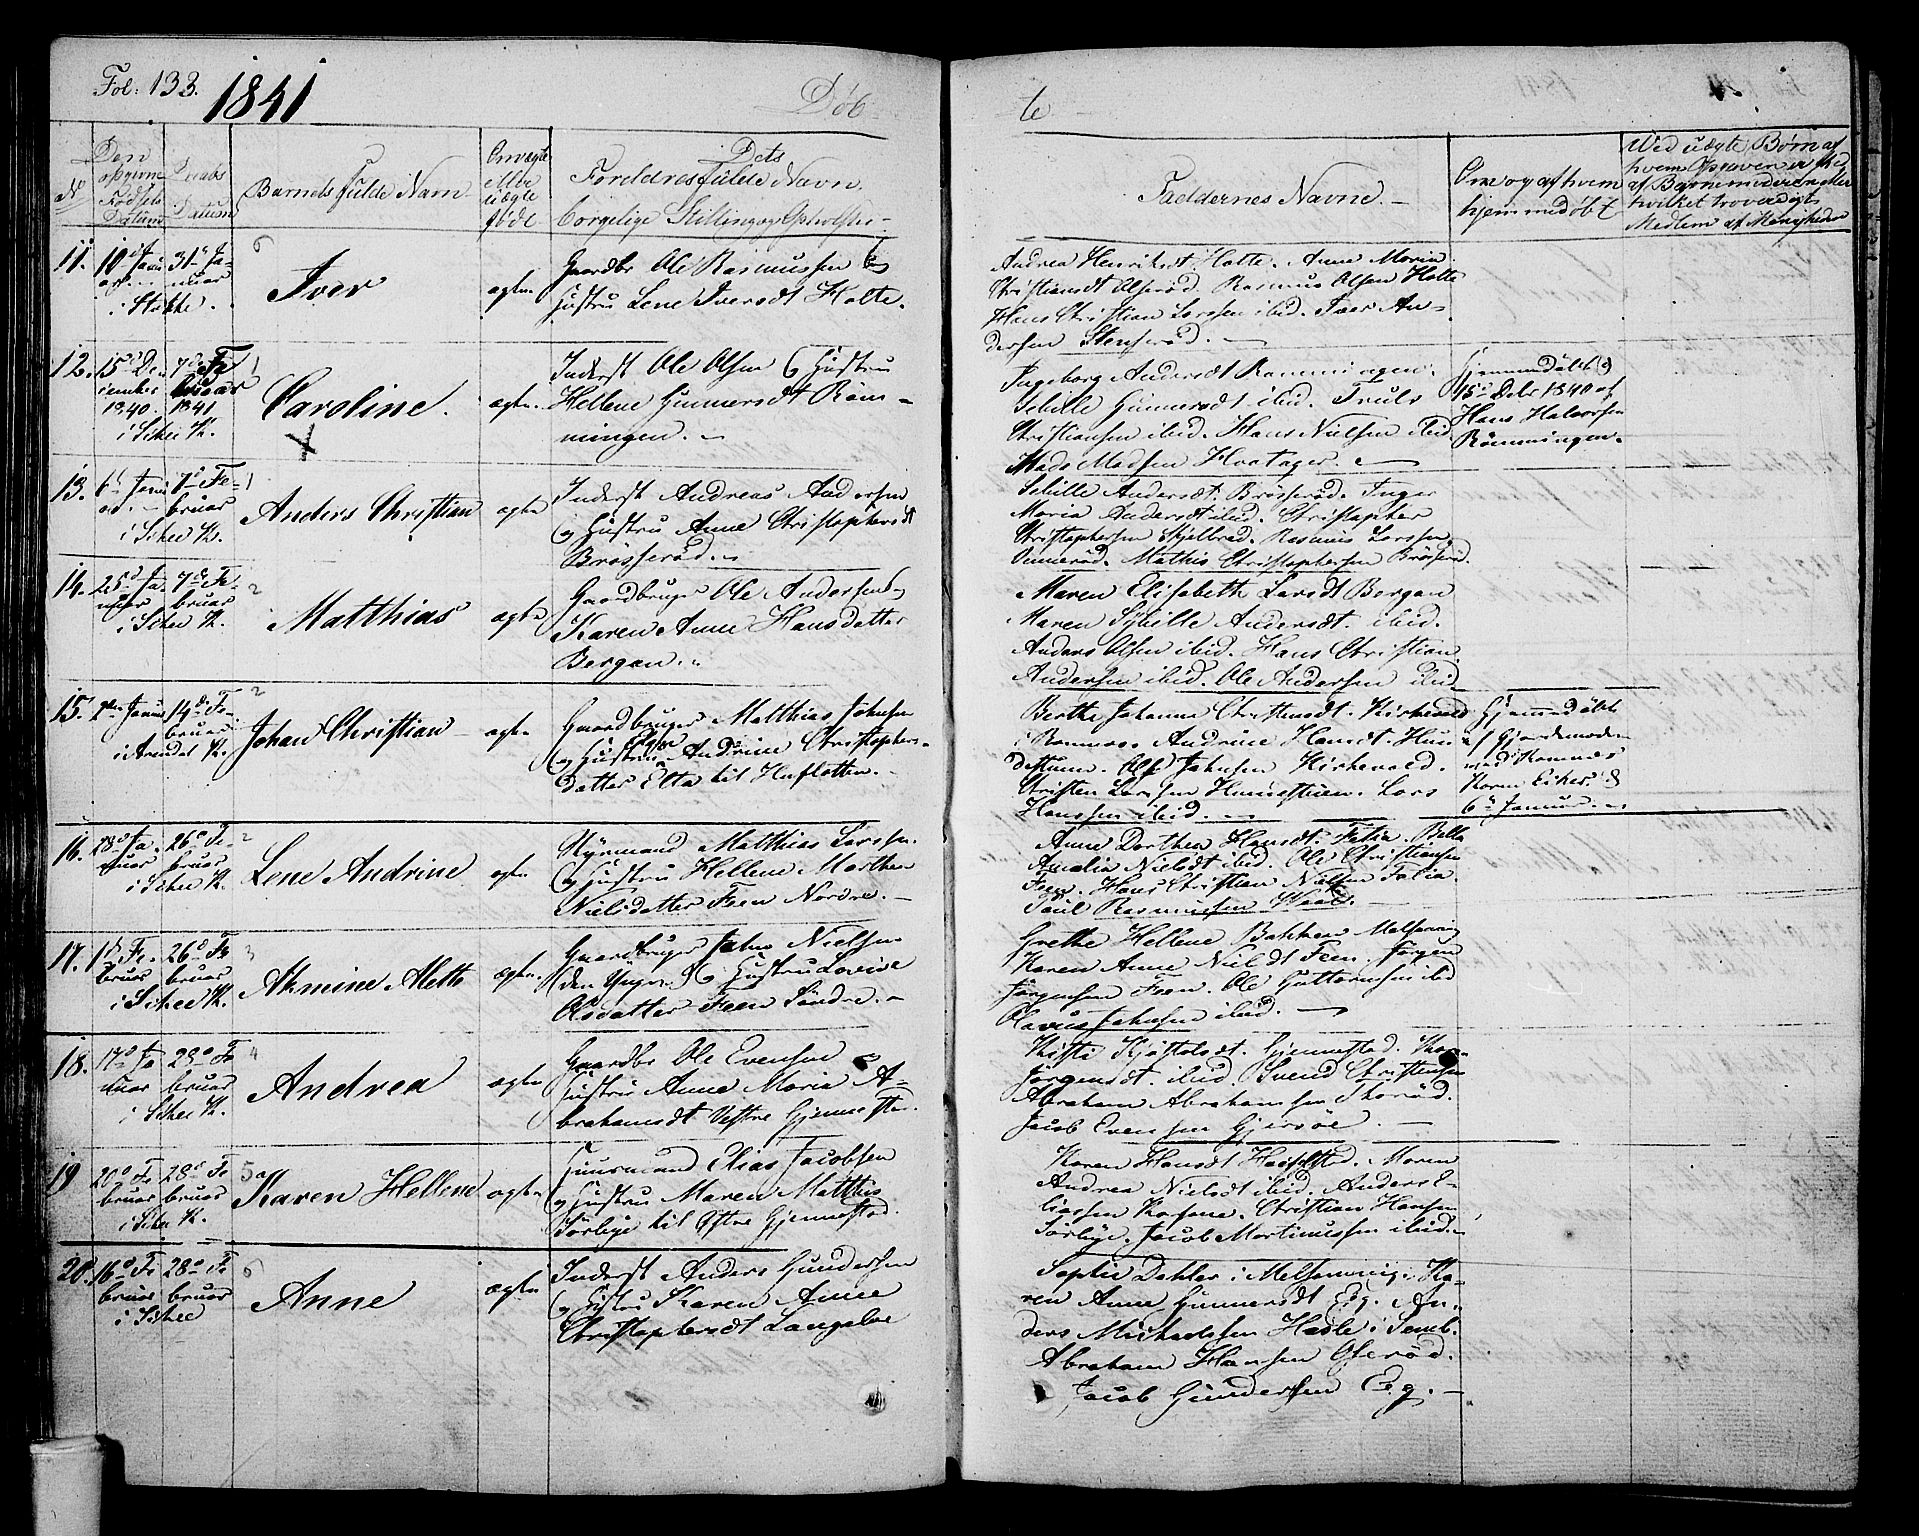 Fol: 133.
1841
Døb-
te
No
Den opgivne Fødsels Datum
Daabs Datum
Barnets fulde Navn
Om ægte eller uægte født
Dets Forældres fulde Navn. borgelige Stilling og Opholdsted
Faddernes Navne. -
Om og af hvem hjemmedøbt
Ved uægte Børn af
11. 10d Janu
31te Ja-
nuar
i Stokke.
Iver
ægte
Gaardbr Ole Rasmussen &
Hustru Lene Iversdt Holte.
Andrea Henriksdt Holte. Anne Maria
Christiansdt Olserød. Rasmus Olsen Holte
Hans Christian Larssen ibid. Iver An-
dersen Stenserød. -
12. 15d De-
cember
1840.
7de Fe
bruar
1841
i Sehee K.
Caroline.
ægte.
Inderst Ole Olsen & Hustru
Hellene Gunnersdt Røm-
mingen. -
Ingeborg Andersdt Rommingen.
Sibille Gunnersdt ibid. Truls
Christiansen ibid. Hans Nielsen ibid.
Mads Madsen Hvatager. -
Hjemmedøbt d
15d Debr 1840 af
Hans Halvorsen
Rømmingen.
13. 6d Janu
7de Fe-
bruar
i Sehee K.
Anders Christian
ægte
Inderst Andreas Andersen
og Hustru Anne Christophersdt
Brøsserød. -
Sibille Andersdt Brøsserød. Inger
Maria Andersdt ibid. Christopher
Christophersen Skjelbred. Rasmus Larssen
Unnerød. Mathis Christophersen Brøsserød.
14. 25d Ja-
nuar
7de Fe-
bruar
i Sehee K.
Matthias
ægte
Gaardbruger Ole Andersen &
Karen Anne Hansdatter
Bergan.
Maren Elisabeth Larsdt Bergan
Maren Sybille Andersdt. ibid.
Anders Olsen ibid. Hans Christian
Andersen ibid. Ole Andersen ibid.
15. 2den Janu
14de Fe-
bruar
i Arendal K.
Johan Christian
ægte
Gaardbruger Matthias Johnsen
og Hustru Else Andrine Christophers-
datter Elta til Huflotten. -
Berthe Johanne Christensdt. Kirkevold
i Ramnes. Andrine Hansdt. Hun
destuen. Ole Johnsen Kirkevold.
Christen Larssen Hunnestuen. Lars
Hanssen ibid. -
Hjemmedøbt
af Gjordemoder
Madm Rammes
Karen Eiker. d
6d Januar. -
16. 28d Ja-
nuar
26d Fe-
bruar
i Sehee K.
Lene Andrine
ægte
Styrmand Matthias Larssen
og Hustru Hellene Marthea
Nielsdatter Feen Nordre. -
Anne Dorthea Hansdt. Falia. Bella
Amalia Nielsdt ibid. Ole Christiansen
Feen. Hans Christian Nielsen Falia.
Paul Rasmussen
17. 1d Fe-
bruar
26d Fe
bruar
i Sehee K.
Akmine Mette
ægte.
Gaardbruger John Nielsen
(den Yngre) & Hustru Lovise
Olsdatter Feen Søndre. -
Grethe Hellene Bakken Melsomvig
Karen Anne Nielsdt Feen. Jørgen
Jørgensen Feen. Ole Guttormsen ibid
Olavus Johnsen ibid. -
18. 17d Ja
nuar
28d Fe
bruar
i Sehee K.
Andrea
ægte
Gaardbr Ole Evensen &
Hustru Anne Maria A-
brahamsdt Vestre Gjennestad.
Kisti Kjøstelsdt. Gjennestad. Kar-
Jørgensdt. ibid. Svend Christensen
Abraham Abrahamsen Skorød.
Jacob Evensen Gjersøe. -
19 20d Fe
bruar
28d Fe
bruar
i Sehee K.
Karen Hellene
ægte
Huusmand Elias Jacobsen
og Hustru Maren Matthis
Sørbye til Østre Gjennestad.
Karen Hansdt. Maren
Andrea Nielsdt ibid. Anders E-
liassen. Christian Hansen
Sørbye. Jacob Martinussen ibid. -
20. 16d Fe
bruar
28d Fe
bruar
i Sehee
Anne
ægte
Inderst Anders Gundersen
og Hustru Karen Anne
Christophersdt Langeløe
Sophie Dahler i Melsomvig. Ka-
ren Anne Gunnersdt Eg. An-
ders Michaelssen Hasle i Semb.
Abraham Hansen Oserød.
Jacob Gundersen Eg. -